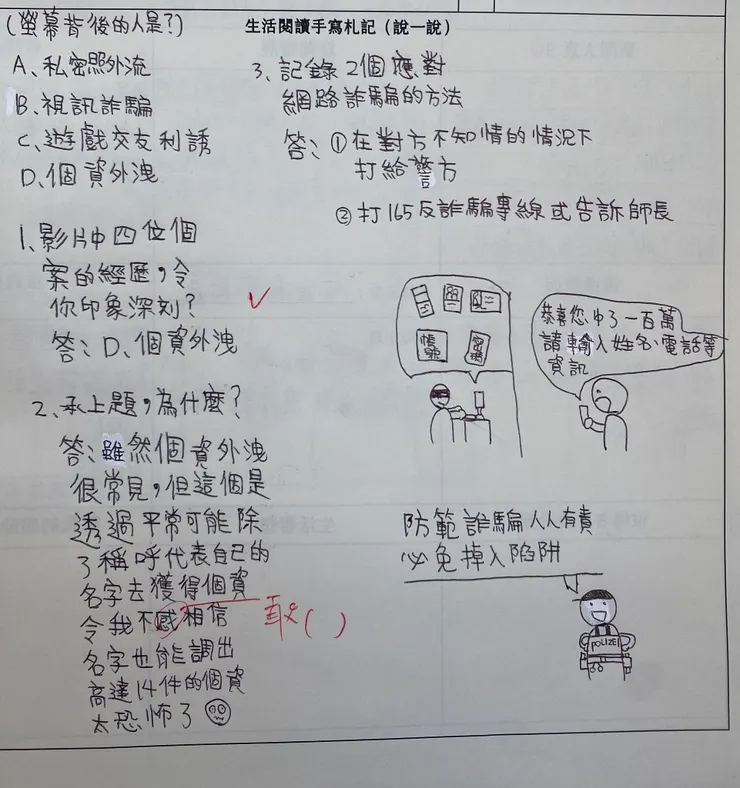 (螢幕背後的人是?)
生活閱讀手寫札記（說一說）
A、私密照外流
B、視訊詐騙
C、遊戲交友利誘
D、個資外洩
1、影片中四位個
案的經歷，令
你印象深刻?
答:D、個資外洩
2、承上題，為什麼?
答:雖然個資外洩
很常見，但這個是
透過平常可能除
了稱呼代表自己的
名字去獲得個資
令我不感相信
敢( )
名字也能調出
高達14件的個資
太恐怖了
3、記錄2個應對
網路詐騙的方法
答:①在對方不知情的情況下
打給警方
②打165反詐騙專線或告訴師長
帳號
密碼
恭喜您中了一百萬
請輸入姓名、電話等
資訊
防範詐騙人人有責
必免掉入陷阱
POLIZEI